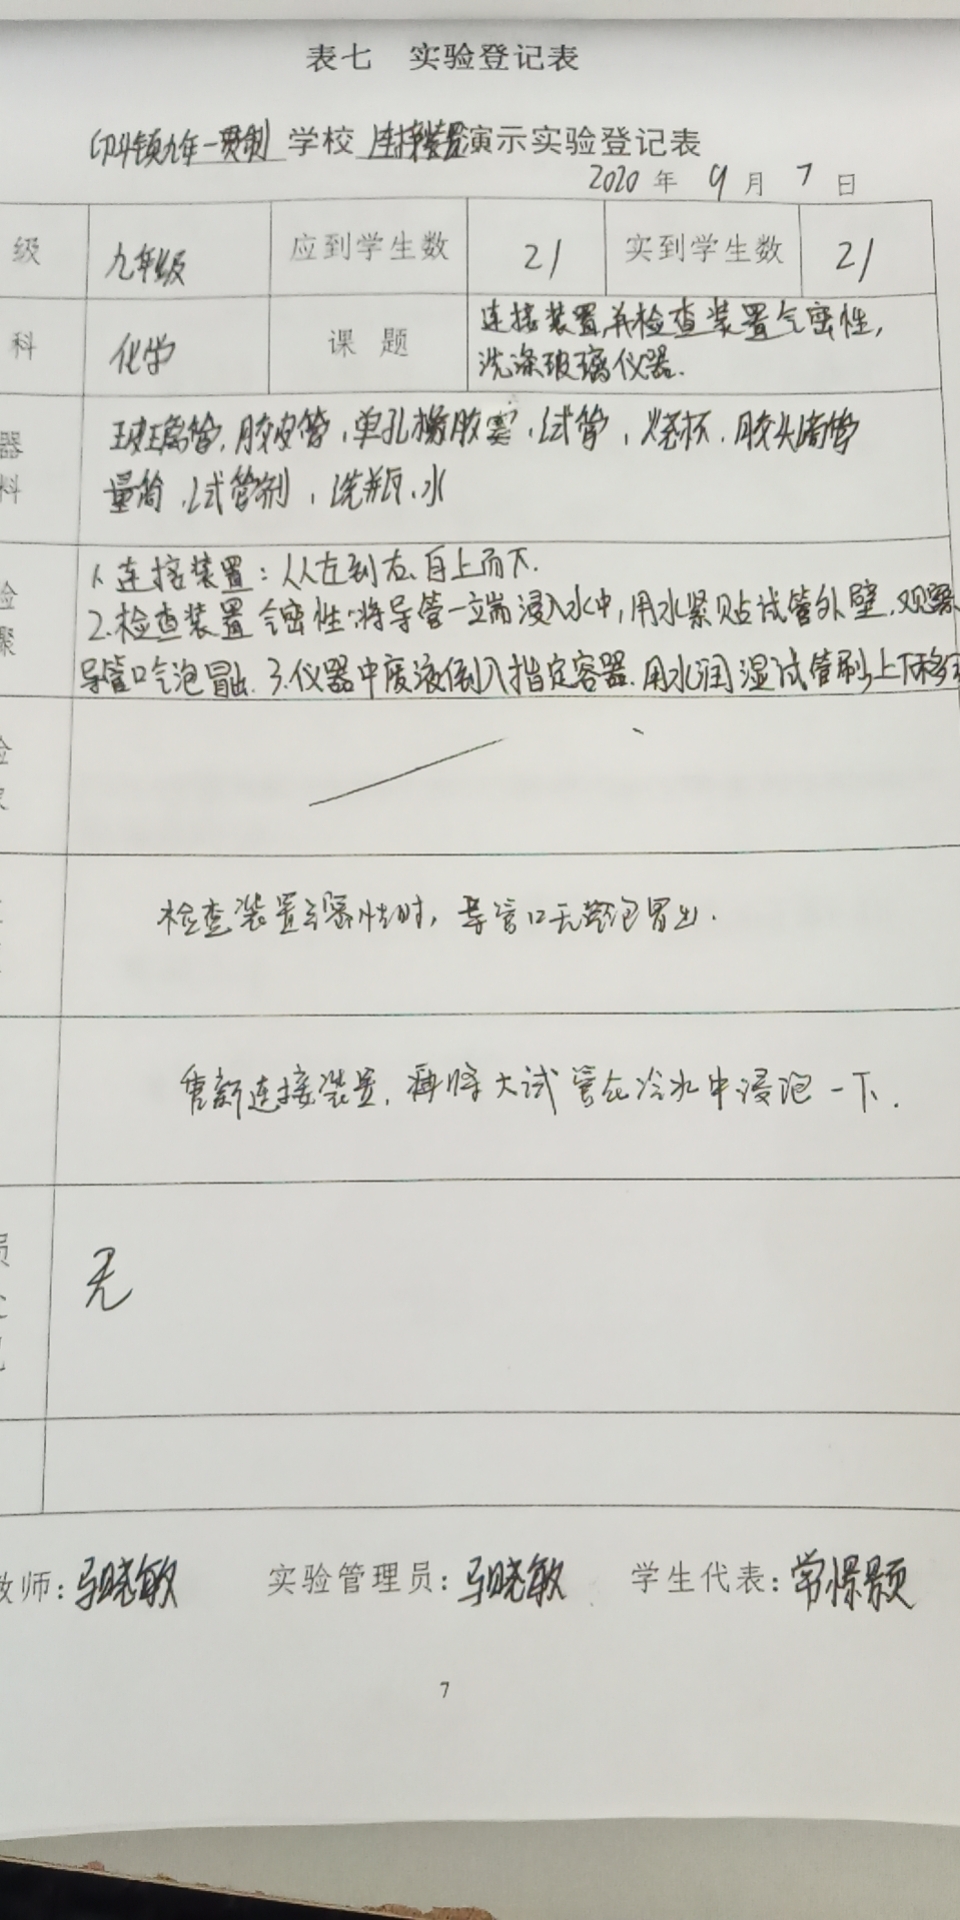 表七 实验登记表
印斗镇九年一贯制 学校 连接装置演示实验登记表
2020 年 9 月 7 日
级 九年级 应到学生数 21 实到学生数 21
科 化学 课 题 连接装置并检查装置气密性,
洗涤玻璃仪器.
器 玻璃管,胶皮管,单孔橡胶塞,试管,烧杯,胶头滴管
料 量筒,试管刷,洗瓶,水
1.连接装置:从左到右,自上而下.
验 2.检查装置气密性:将导管一端浸入水中,用水紧贴试管外壁,观察
骤 导管口气泡冒出.3.仪器中废液倒入指定容器.用水润湿试管刷上下移
验
检查装置气密性时,导管口无气泡冒出.
重新连接装置,再将大试管在冷水中浸泡一下.
损 无
教师:马晓敏 实验管理员:马晓敏 学生代表:常
7